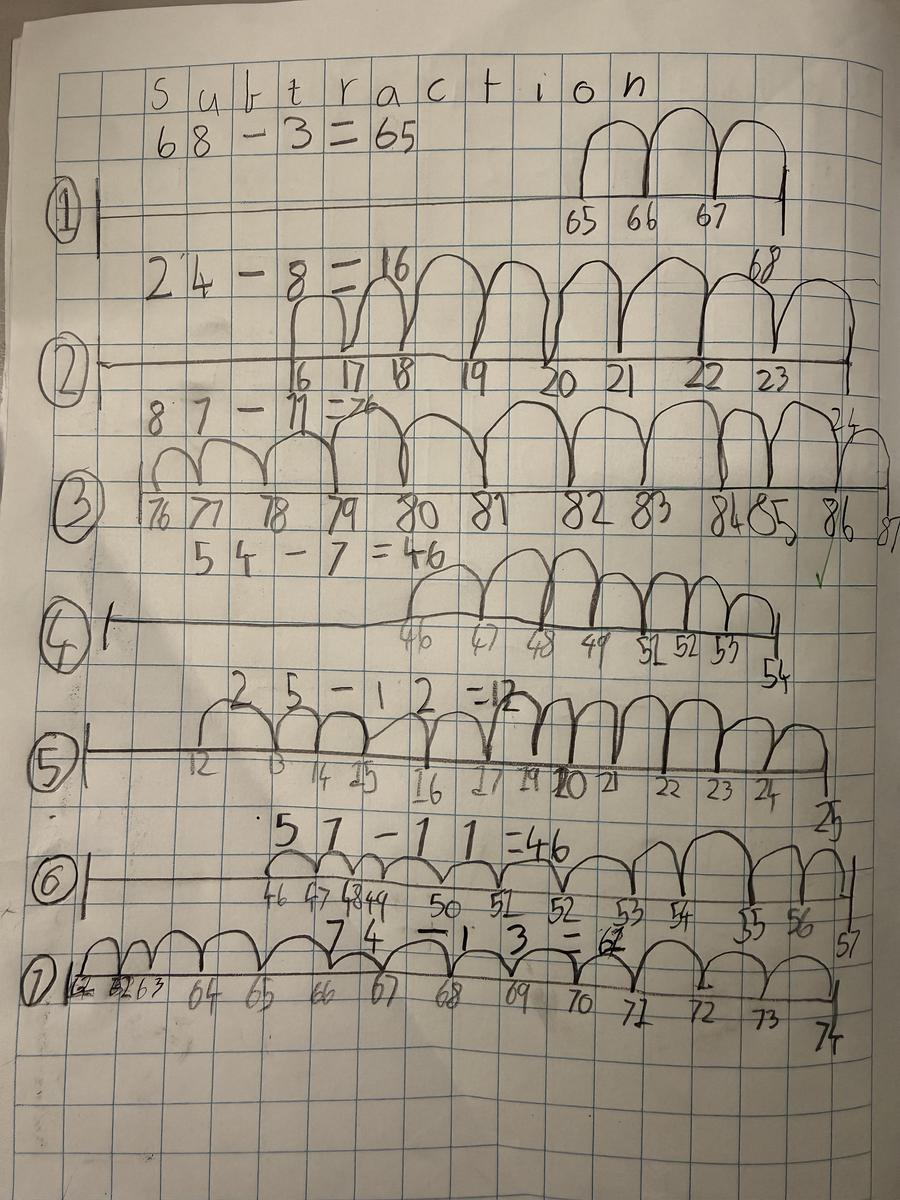 Subtraction
68 - 3 = 65
① 65 66 67 68
24 - 8 = 16
② 16 17 18 19 20 21 22 23 24
87 - 11 = 76
③ 76 77 78 79 80 81 82 83 84 85 86 87
54 - 7 = 46
④ 46 47 48 49 51 52 53 54
25 - 12 = 12
⑤ 12 13 14 15 16 17 19 20 21 22 23 24 25
57 - 11 = 46
⑥ 46 47 48 49 50 51 52 53 54 55 56 57
74 - 13 =
⑦ 62 63 64 65 66 67 68 69 70 71 72 73 74